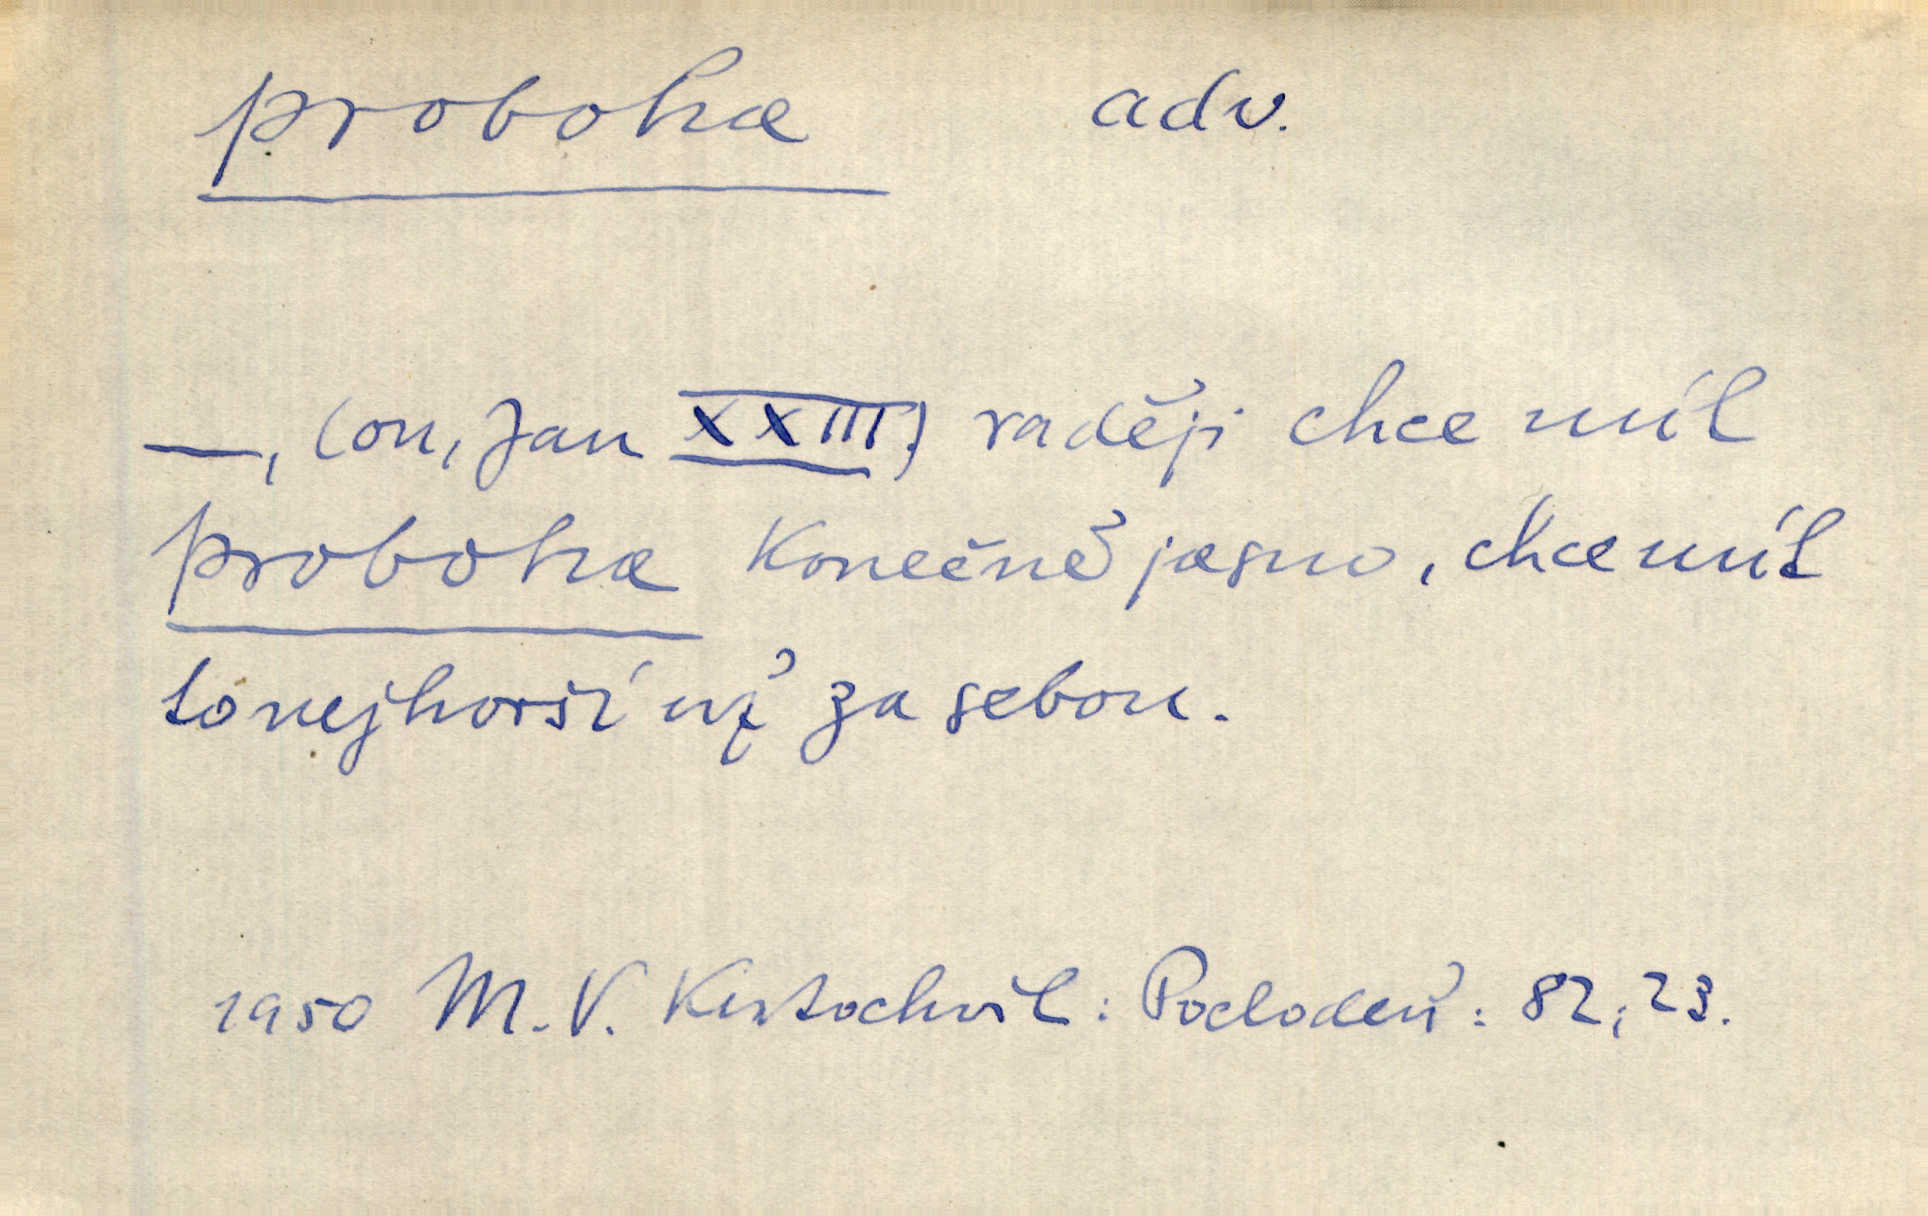 proboha adv.
—, (on, Jan XXIII.) raději chce mít
proboha konečně jasno, chce mít
to nejhorší už za sebou.
1950 M. V. Kratochvíl: Pochodeň: 82, 23.